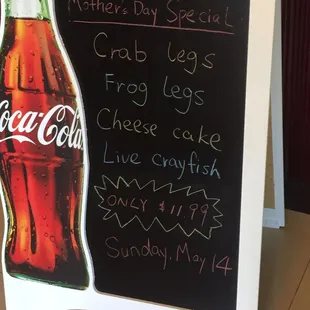 Mother's Day Special
Crab legs
Frog legs
Cheese cake
Live crayfish
ONLY $11.99
Sunday, May 14
Coca-Cola